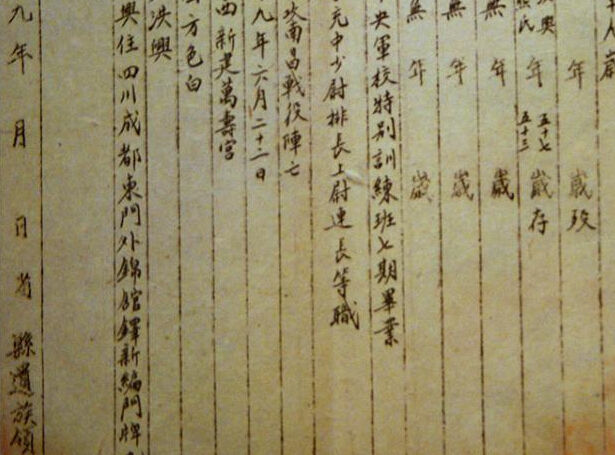 年 歲歿
氏 年 五十七 五十三 歲存
無 年 歲
無 年 歲
無 年 歲
央軍校特別訓練班七期畢業
充中少尉排長上尉連長等職
南昌戰役陣亡
九年六月二十二日
西新建萬壽宮
方色白
洪興
興住四川成都東門外錦官驛新編門牌
九年 月 日 省 縣遺族領